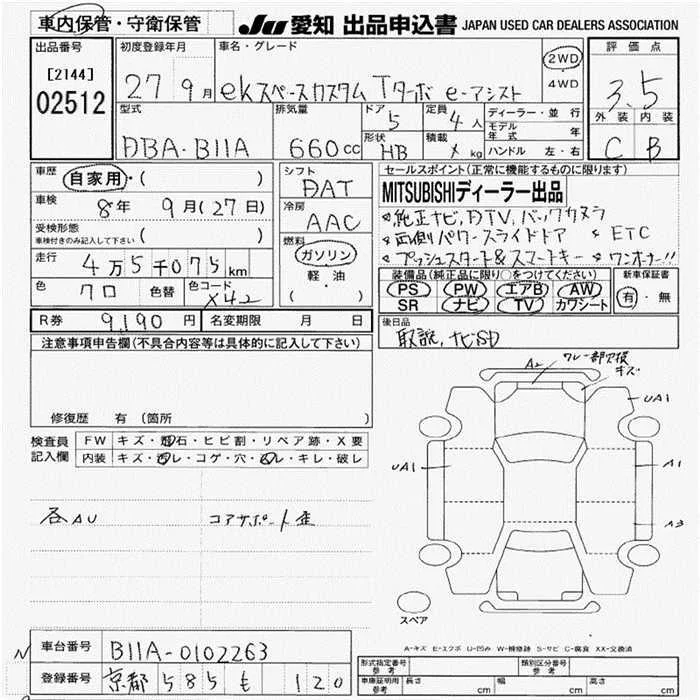 車内保管・守衛保管 JU 愛知 出品申込書 JAPAN USED CAR DEALERS ASSOCIATION
出品番号 初度登録年月 車名・グレード 評価点
[2144] 27 9月 ekスペースカスタム Tターボ e-アシスト 2WD 4WD 3.5
02512
型式 排気量 ドア 5 定員 4人 ディーラー・並行 外装 内装
モデル年式 年
DBA-B11A 660cc 形状 HB 積載 X kg ハンドル 左・右 C B
車歴 自家用・( )
シフト DAT
セールスポイント(正常に機能するものに限ります)
MITSUBISHIディーラー出品
車検 8年 9月(27日)
冷房 AAC
純正ナビ,DTV,バックカメラ
受検形態 ( )
車検付きのみ記入して下さい
両側パワースライドドア ETC
燃料 ガソリン 軽・油 ( )
プッシュスタート&スマートキー ワンオーナー!!
走行 4万5千075km
装備品(純正品に限り○をつけてください) 新車保証書
PS PW エアB AW 有・無
色 クロ 色替 色コード X42
SR ナビ TV カワシート
R券 9,190円 名変期限 月 日
後日品
取説,ナビSD
注意事項申告欄(不具合内容等は具体的に記入して下さい)
A2 ワレ一部欠損
キズ
UA1
修復歴 有 (箇所
検査員記入欄 FW キズ・飛石・ヒビ割・リペア跡・X要
内装 キズ・汚レ・コゲ・穴・スレ・キレ・破レ
UA1 A1
各AU コアサポート歪
A3
スペア
A-キズ E-エクボ U-凹み W-補修跡 S-サビ C-腐食 XX-交換済
N
車台番号 B11A-0102263
形式指定番号 参考 類別区分番号 参考
登録番号 京都 585 も 120
車庫証明用 参考 長さ cm 幅 cm 高さ cm